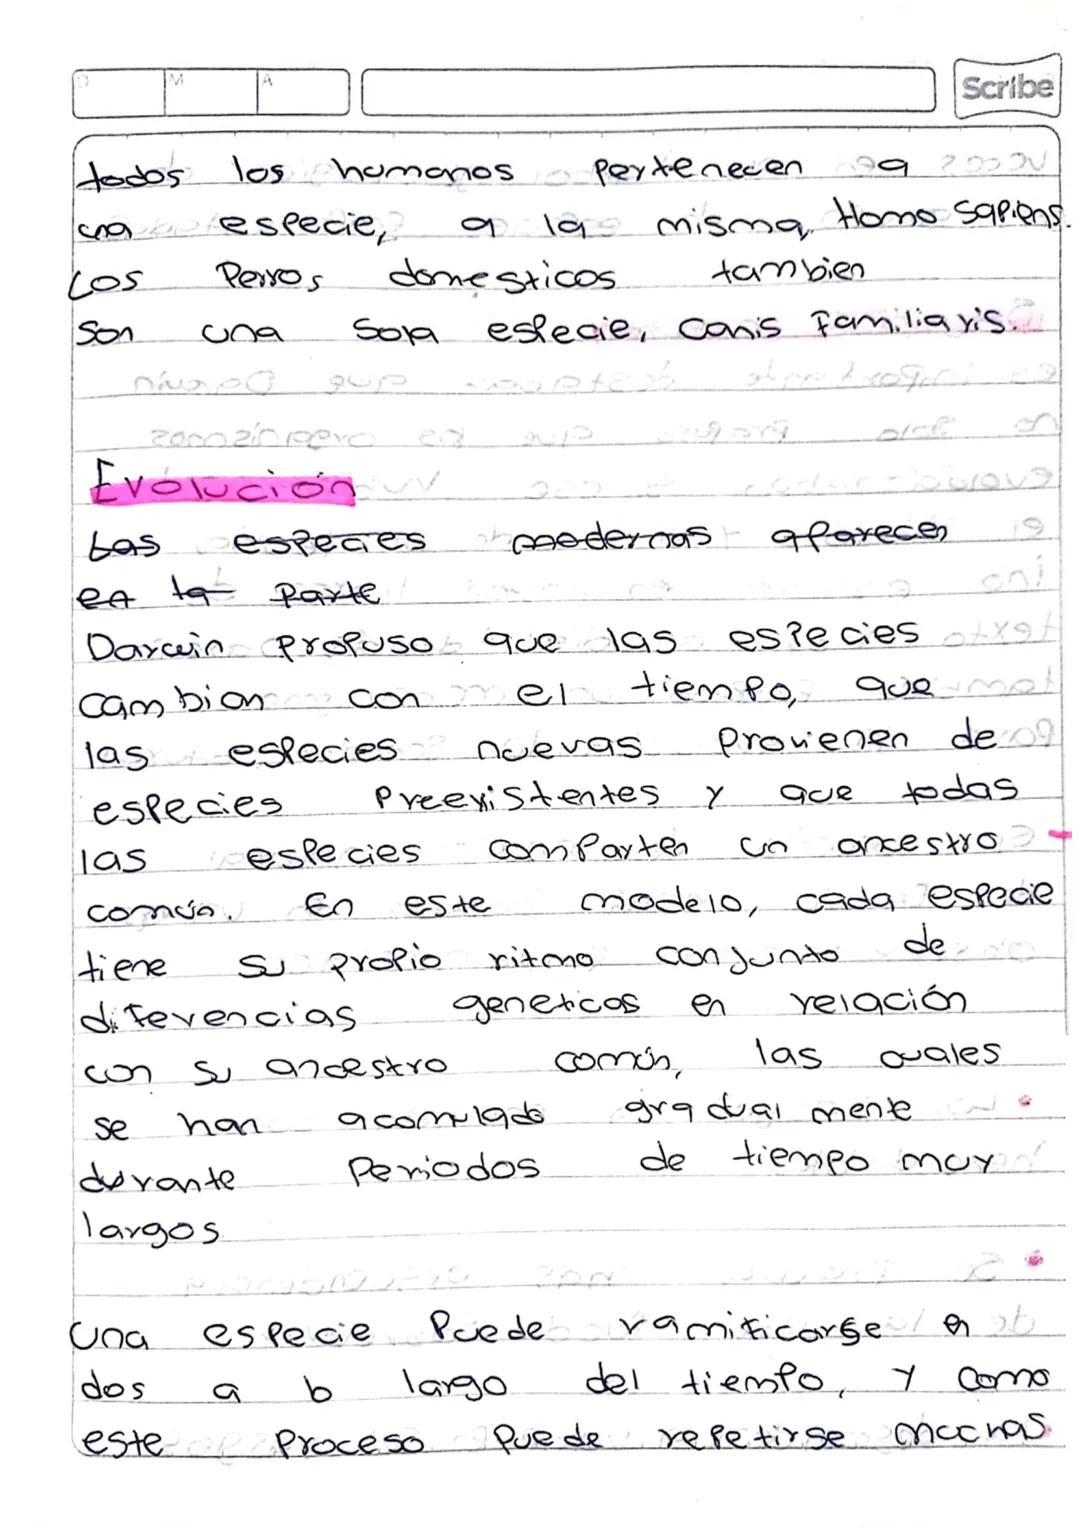 D M A
Scribe
todos los humanos Pertenecen a
una especie, a la misma, Homo Sapiens.
Los Perros domesticos tambien
son una Sola especie, Canis Familiaris.
Evolución
Las especies modernas aparecen
en la Parte
Darwin Propuso que las especies
Cambian con el tiempo, que
las especies nuevas Provienen de
especies Preexistentes y que todas
las especies comparten un ancestro
común. En este modelo, cada especie
tiene su propio ritmo conjunto de
diferencias geneticas en relación
con su ancestro común, las cuales
se han acomulado gradualmente
durante Periodos de tiempo muy
largos
Una especie Puede ramificarse en
dos a b largo del tiempo, y como
este Proceso Puede repetirse muchas